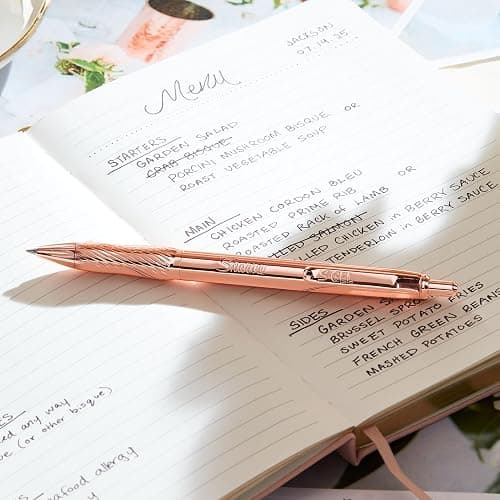 JACKSON
07.14.25
Menu
STARTERS
GARDEN SALAD
CRAB BISQUE
PORCINI MUSHROOM BISQUE OR
ROAST VEGETABLE SOUP
MAIN
CHICKEN CORDON BLEU
ROASTED PRIME RIB
ROASTED RACK of LAMB OR
LLED SALMON
LLED CHICKEN in BERRY SAUCE
TENDERLOIN in BERRY SAUCE
SIDES
GARDEN
BRUSSEL SPRO
SWEET POTATO FRIES
FRENCH GREEN BEANS
MASHED POTATOES
ed any way
e (or other bisque)
afood allergy